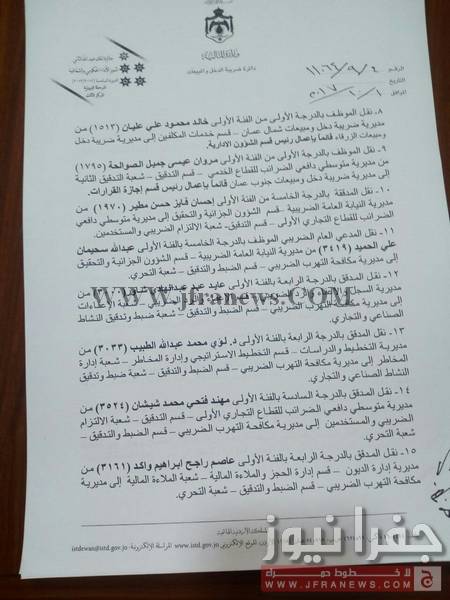 وزارة المالية
دائرة ضريبة الدخل والمبيعات
الرقم ١١٠٦٦/٩/٤
التاريخ
الموافق
المرحلة الفضية
المركز الثالث
٨- نقل الموظف بالدرجة الأولى من الفئة الأولى خالد محمود علي عليان (١٥١٣) من
مديرية ضريبة دخل ومبيعات شمال عمان – قسم خدمات المكلفين إلى مديرية ضريبة دخل
ومبيعات الزرقاء قائماً بأعمال رئيس قسم الشؤون الادارية.
٩- نقل الموظف بالدرجة الأولى من الفئة الأولى مروان عيسى جميل الصوالحة (١٧٩٥)
من مديرية متوسطي دافعي الضرائب للقطاع الخدمي – قسم التدقيق – شعبة التدقيق الثانية
إلى مديرية ضريبة دخل ومبيعات جنوب عمان قائماً بأعمال رئيس قسم إجازة القرارات.
١٠- نقل المدققة بالدرجة الخامسة من الفئة الأولى إحسان فايز حسن مطير (١٩٧٠) من
مديرية النيابة العامة الضريبية – قسم الشؤون الجزائية والتحقيق إلى مديرية متوسطي دافعي
الضرائب للقطاع التجاري الأولى – قسم التدقيق – شعبة الالتزام الضريبي والمستخدمين.
١١- نقل المدعي العام الضريبي الموظف بالدرجة الخامسة بالفئة الأولى عبدالله سحيمان
علي الحميد (٣٤١٩) من مديرية النيابة العامة الضريبية – قسم الشؤون الجزائية والتحقيق
إلى مديرية مكافحة التهرب الضريبي – قسم الضبط والتدقيق – شعبة التحري.
١٢- نقل المدقق بالدرجة الرابعة بالفئة الأولى عابد عبد من
مديرية
إلى مديرية مكافحة التهرب الضريبي – قسم الضبط والتدقيق – شعبة ضبط وتدقيق النشاط
الصناعي والتجاري.
١٣- نقل المدقق بالدرجة الرابعة بالفئة الأولى د. لؤي محمد عبدالله الطبيب (٣٠٣٣) من
مديرية التخطيط والدراسات – قسم التخطيط الاستراتيجي وإدارة المخاطر – شعبة إدارة
المخاطر إلى مديرية مكافحة التهرب الضريبي – قسم الضبط والتدقيق – شعبة ضبط وتدقيق
النشاط الصناعي والتجاري.
١٤- نقل المدقق بالدرجة السادسة بالفئة الأولى مهند فتحي محمد شيشان (٣٥٢٤) من
مديرية متوسطي دافعي الضرائب للقطاع التجاري الأولى – قسم التدقيق – شعبة الالتزام
الضريبي والمستخدمين إلى مديرية مكافحة التهرب الضريبي – قسم الضبط والتدقيق –
شعبة التحري.
١٥- نقل المدقق بالدرجة الرابعة بالفئة الأولى عاصم راجح ابراهيم واكد (٣١٦١) من
مديرية إدارة الديون – قسم إدارة الحجز والملاءة المالية – شعبة الملاءة المالية إلى مديرية
مكافحة التهرب الضريبي – قسم الضبط والتدقيق – شعبة التحري.
الموقع الإلكتروني www.istd.gov.jo المراسلة الإلكترونية: istdewan@istd.gov.jo
WWW.jfranews.COM
جفرا نيوز
لا خطوط حمراء
WWW.JFRANEWS.COM